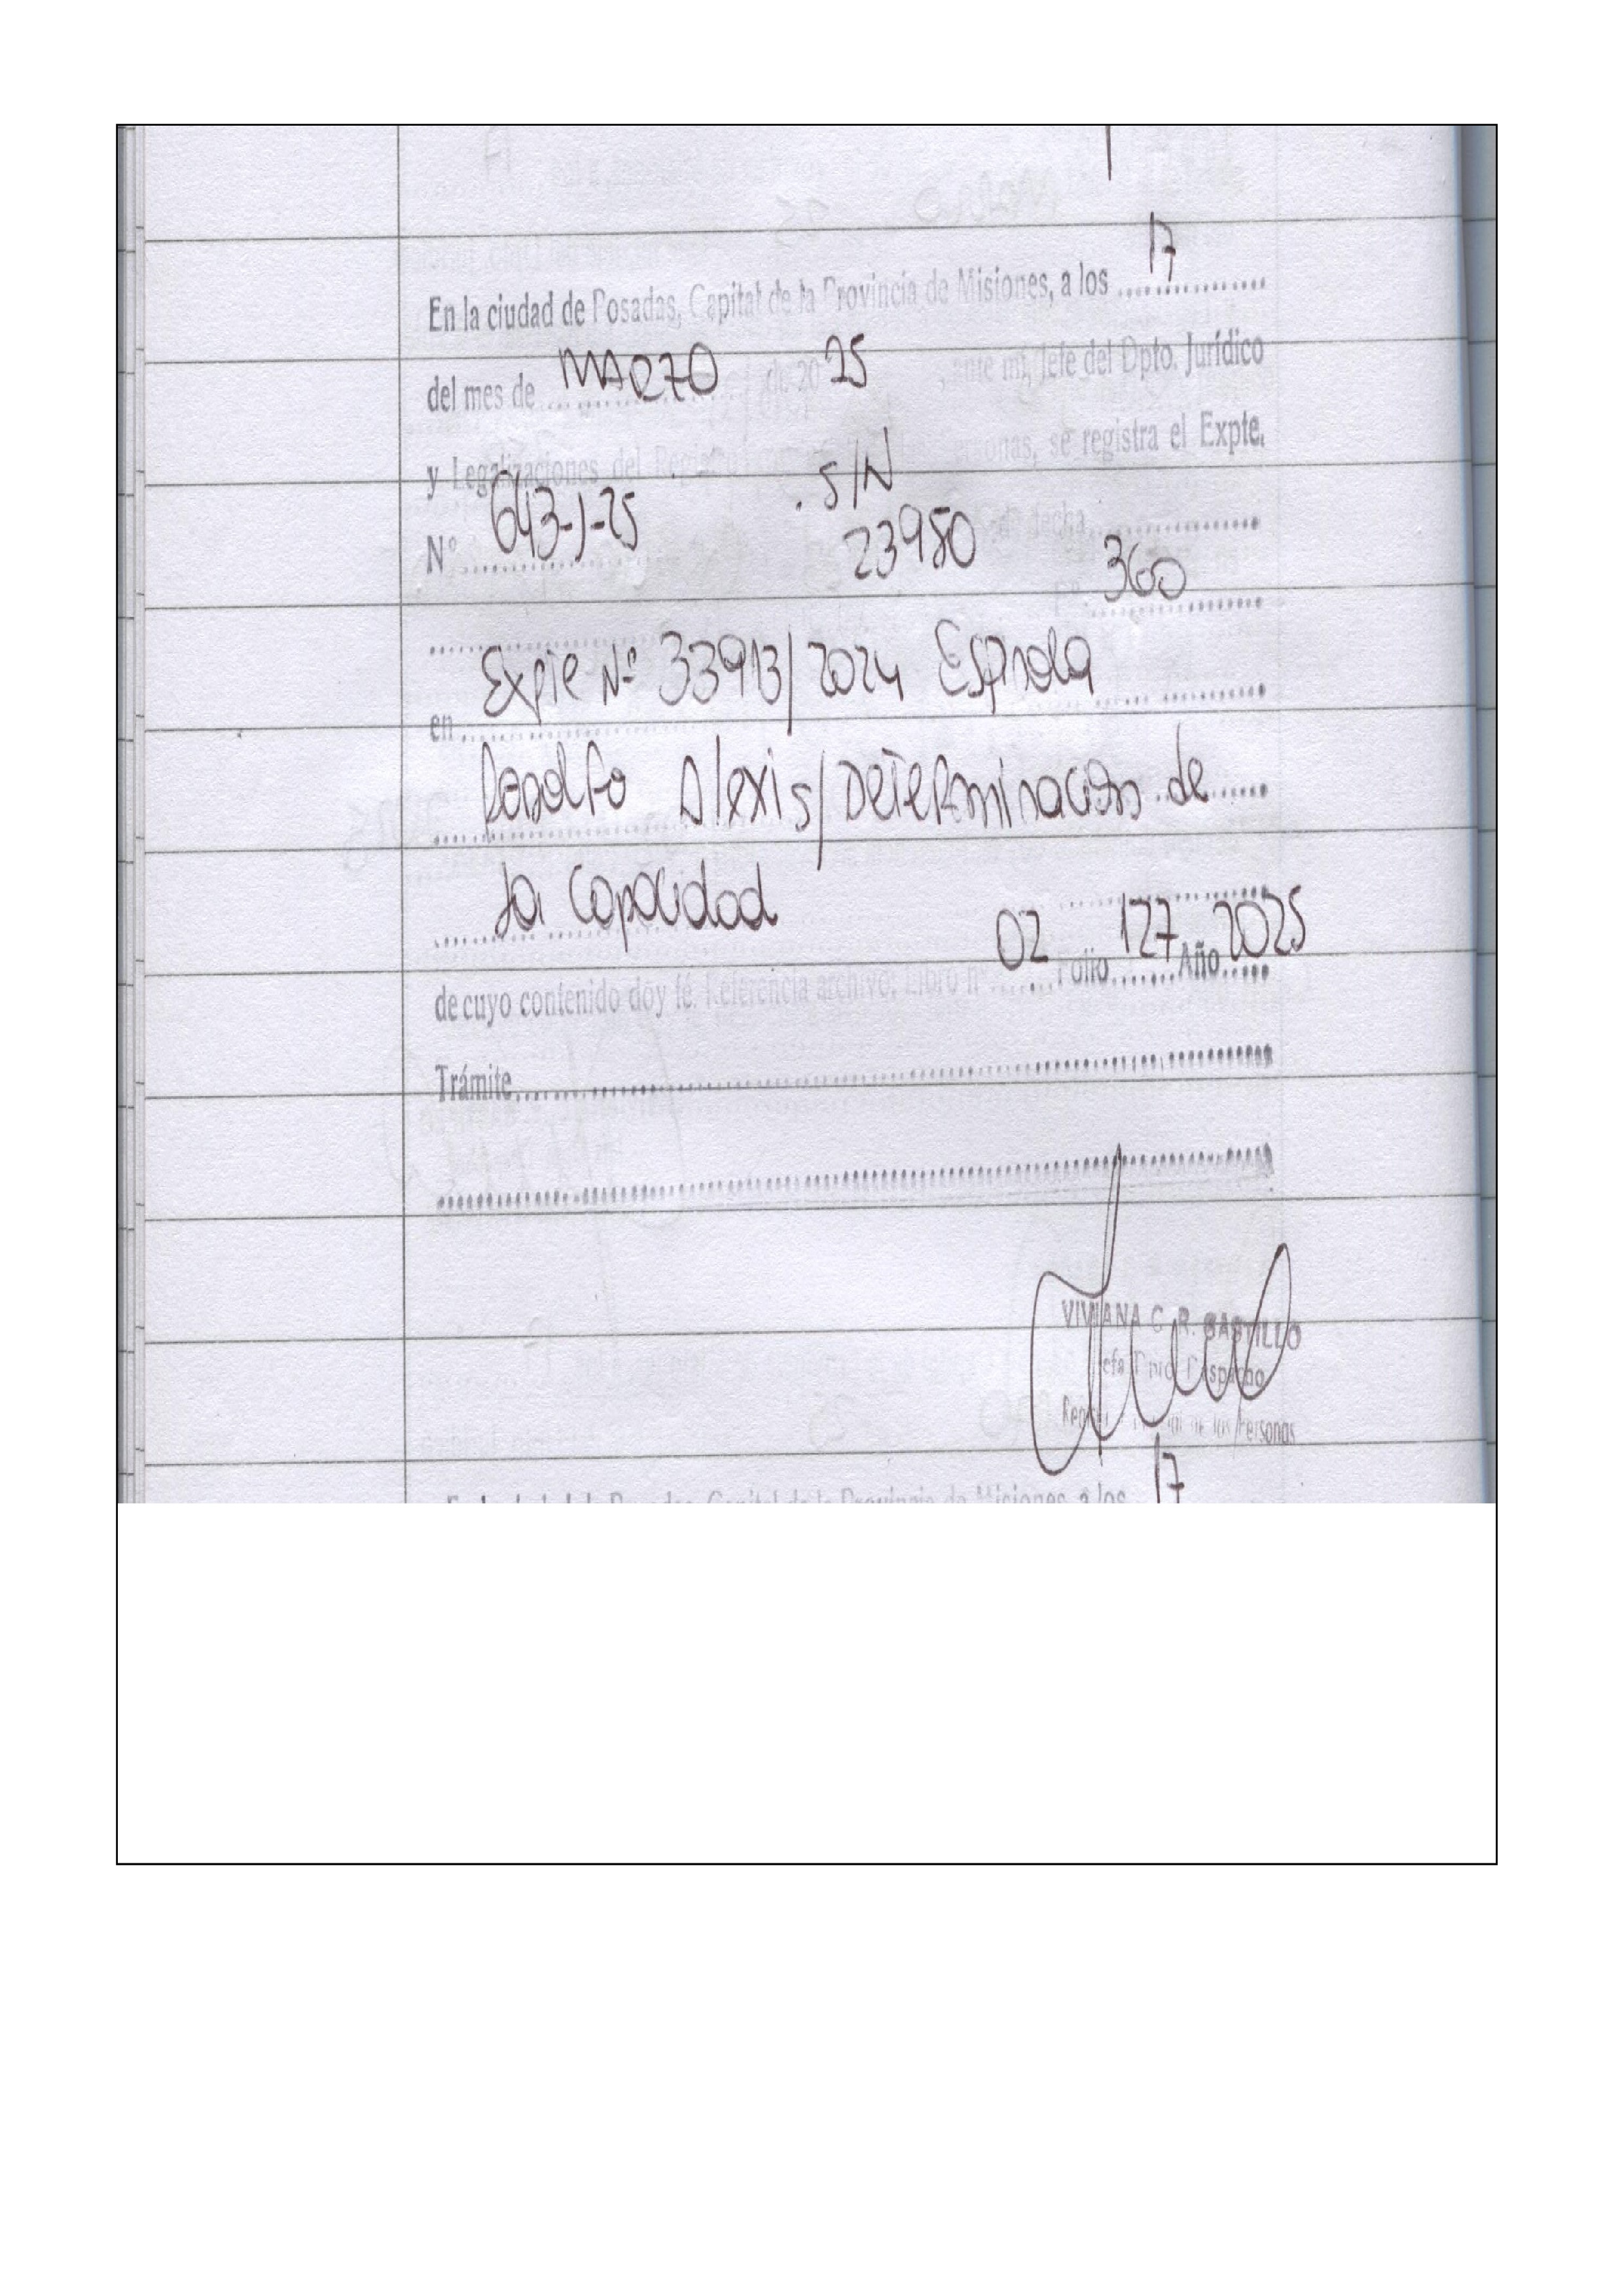 En la ciudad de Posadas, Capital de la Provincia de Misiones, a los 17
del mes de MARZO de 20 25, ante mi, Jefe del Dpto. Jurídico
y Legalizaciones del ersonas, se registra el Expte,
N° 643-J-25 S/N de fecha
23980 360
en Expte Nº 33913/2024 Espindola
Rodolfo Alexis/Determinación de
la Capacidad
de cuyo contenido doy fé. Referencia archivo: Libro n° 02 Folio 127 Año 2025
Trámite
VIVIANA C. R. CASTILLO
Despacho
de las Personas
En la ciudad de Posadas, Capital de la Provincia de Misiones, a los 17